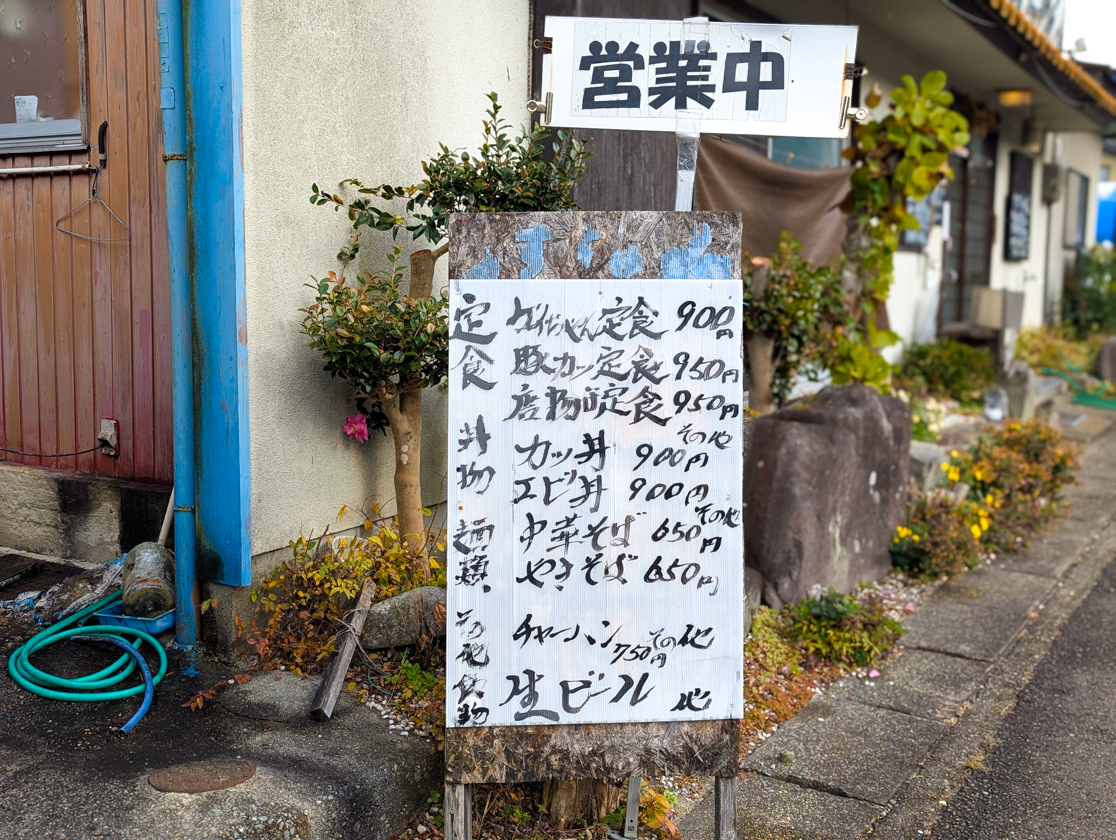 営業中
定食
ケイちゃん定食 900円
豚カツ定食 950円
唐揚定食 950円
その他
丼物
カツ丼 900円
エビ丼 900円
その他
麺類
中華そば 650円
やきそば 650円
その他
その他食物
チャーハン 750円
その他
生ビール 他